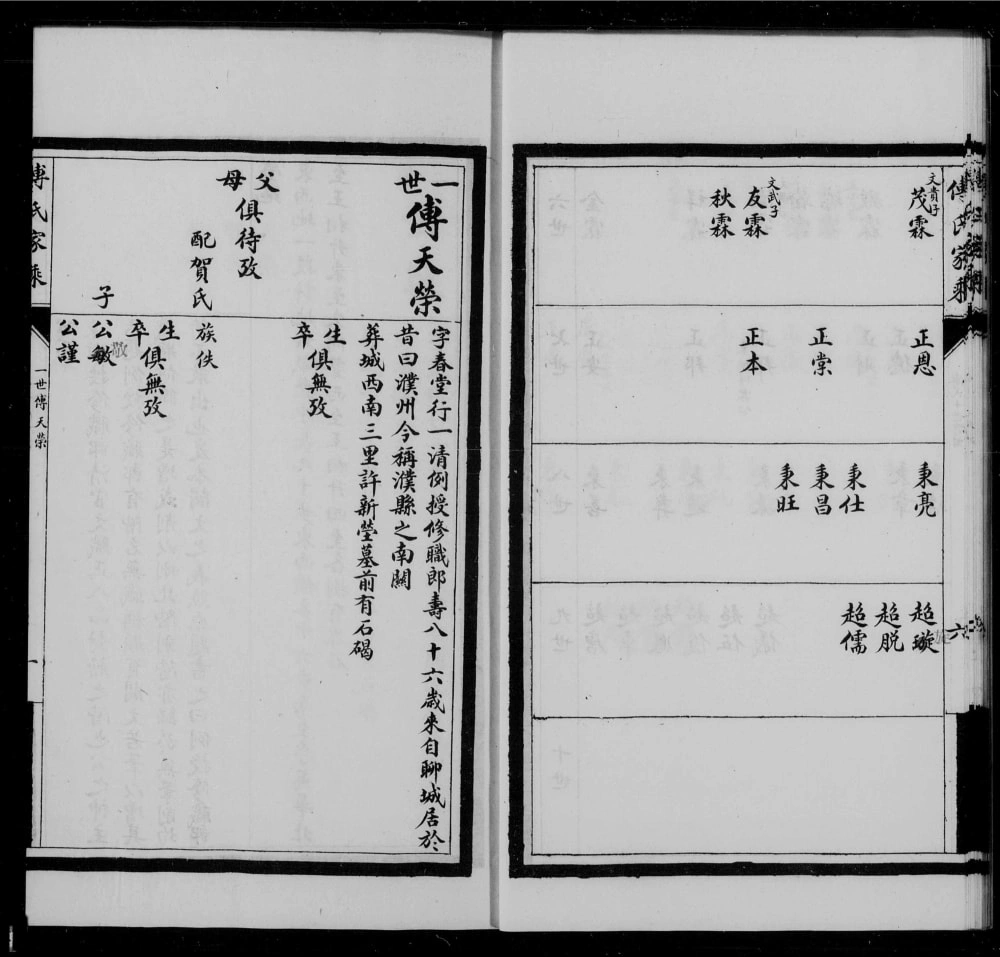 傅氏家乘
六
文貴子
茂霖
文武子
友霖
秋霖
正恩
正棠
正本
秉亮
秉仕
秉昌
秉旺
超璇
超脱
超儒
一世
傅天榮
字春堂行一清例授修職郎壽八十六歲來自聊城居於
昔曰濮州今稱濮縣之南關
葬城西南三里許新塋墓前有石碣
生
卒
俱無攷
父
母
俱待攷
配賀氏
族佚
生
卒
俱無攷
子
公敏
敬
公謹
傅氏家乘
一世傅天榮
一